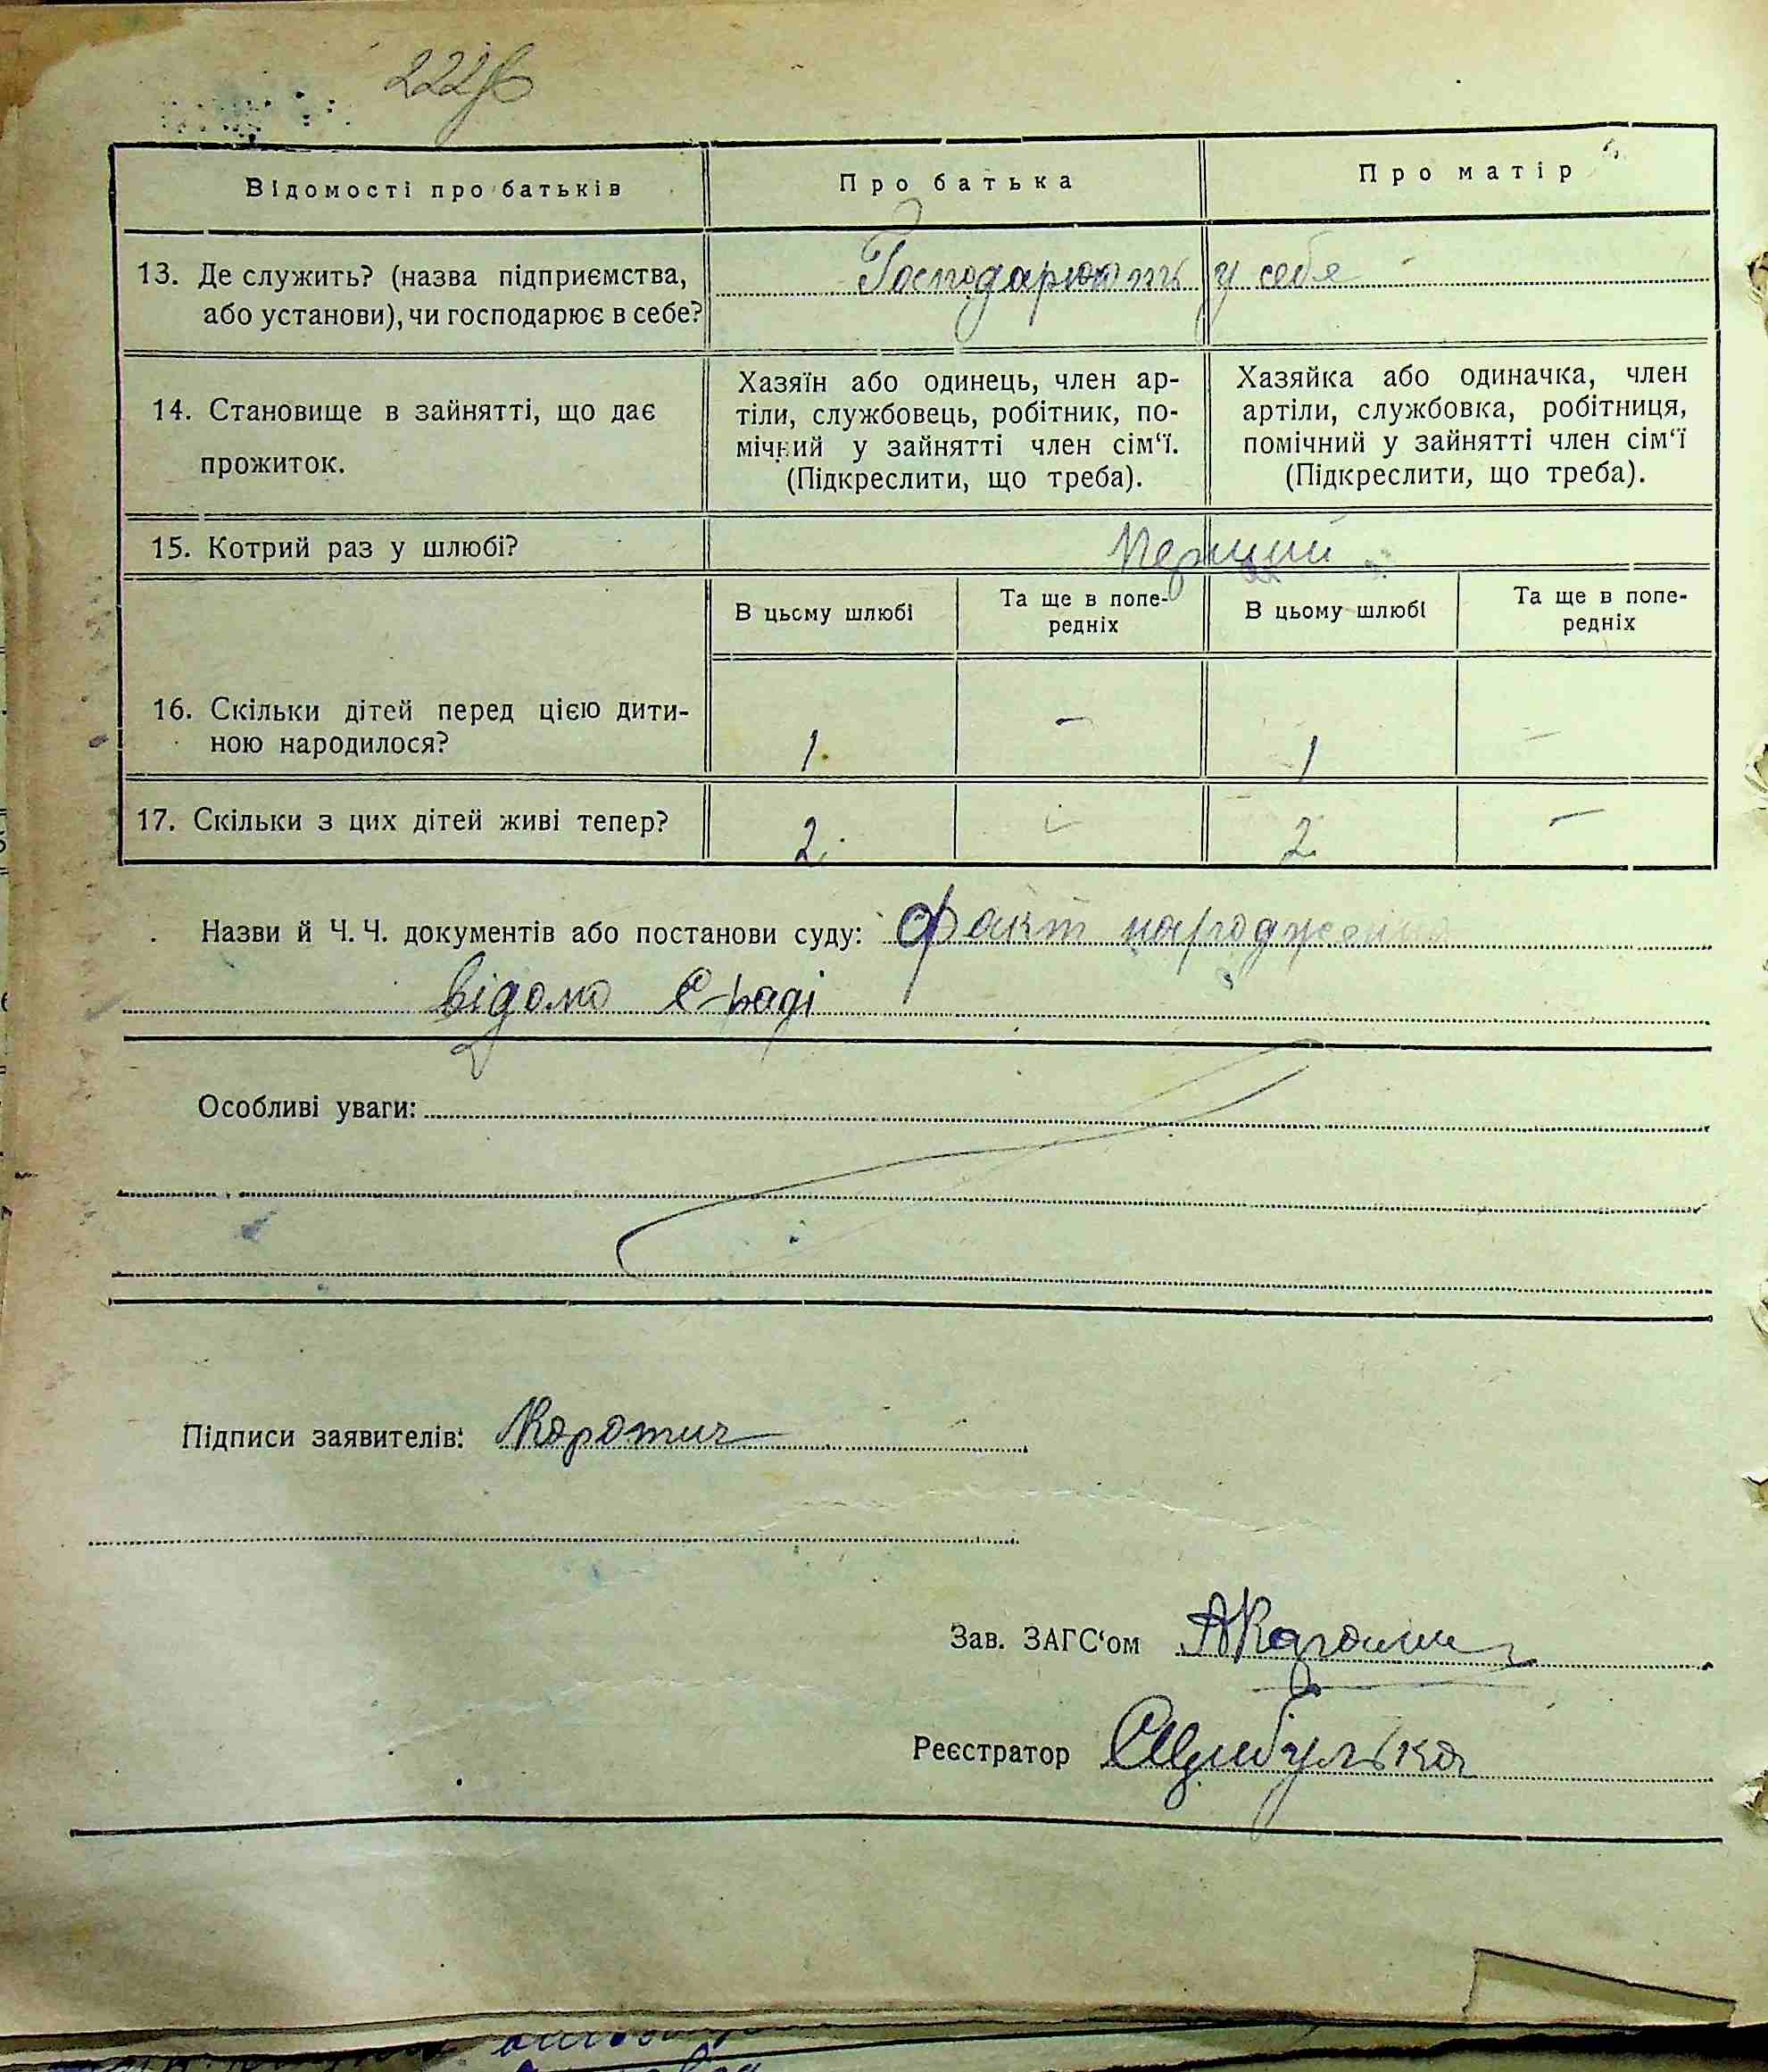 222
Відомості про батьків
Про батька
Про матір
13. Де служить? (назва підприємства,
або установи), чи господарює в себе?
Господарюють у себе
14. Становище в зайнятті, що дає
прожиток.
Хазяїн або одинець, член ар-
тіли, службовець, робітник, по-
мічний у зайнятті член сім‘ї.
(Підкреслити, що треба).
Хазяйка або одиначка, член
артіли, службовка, робітниця,
помічний у зайнятті член сім‘ї
(Підкреслити, що треба).
15. Котрий раз у шлюбі?
Перший
В цьому шлюбі
Та ще в попе-
редніх
В цьому шлюбі
Та ще в попе-
редніх
16. Скільки дітей перед цією дити-
ною народилося?
1. - 1 -
17. Скільки з цих дітей живі тепер?
2. - 2 -
Назви й Ч. Ч. документів або постанови суду: Факт народження
відомо с/раді
Особливі уваги:
Підписи заявителів: Коротич
Зав. ЗАГС‘ом
Реєстратор Цибулька